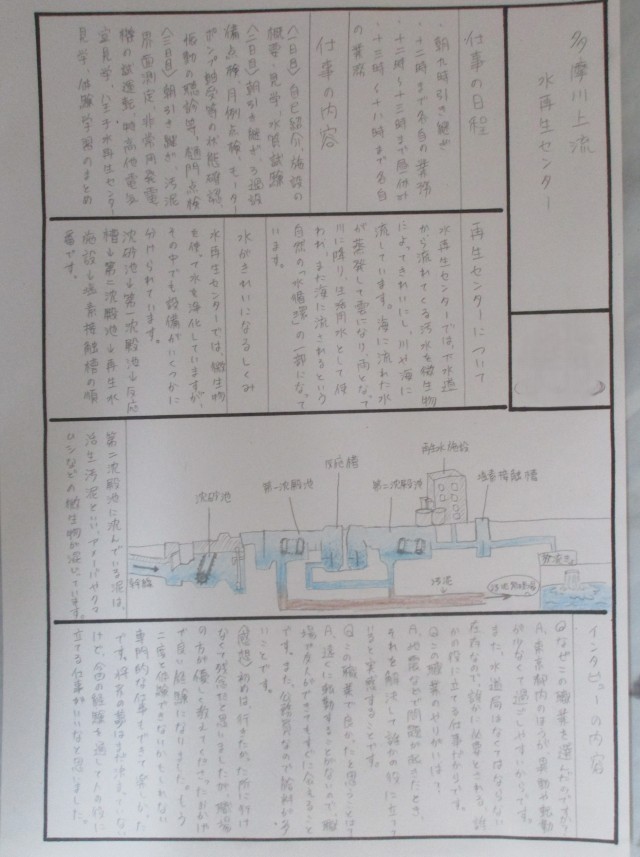 多摩川上流
水再生センター
仕事の日程
・朝九時引き継ぎ
・十二時まで各自の業務
・十二時〜十三時まで昼休み
・十三時〜十八時まで各自
の業務
仕事の内容
(一日目)自己紹介、施設の
概要、見学、水質試験
(二日目)朝引き継ぎ、ろ過設
備点検、月例点検、モーター
ポンプ軸受等の状態確認、
振動の聴診等、樋門点検
(三日目)朝引き継ぎ、汚泥
界面測定、非常用発電
機の試運転、特高他電気
室見学、八王子水再生センター
見学、体験学習のまとめ
再生センターについて
水再生センターでは、下水道
から流れてくる汚水を微生物
によってきれいにし、川や海に
流しています。海に流れた水
が蒸発して雲になり、雨となって
川に降り、生活用水として使
われ、また海に流されるという
自然の「水循環」の一部になって
います。
水がきれいになるしくみ
水再生センターでは、微生物
を使って水を浄化していますが、
その中でも設備がいくつかに
分けられています。
沈砂池→第一沈殿池→反応
槽→第二沈殿池→再生水
施設→塩素接触槽の順
番です。
沈砂池
第一沈殿池
反応槽
第二沈殿池
塩素接触槽
汚泥
第二沈殿池に沈んでいる泥は、
活生汚泥といい、アメーバやクマ
ムシなどの微生物が混じっています。
インタビューの内容
Qなぜこの職業を選んだのですか?
A、東京都内のほうが、異動や転勤
が少なくて過ごしやすいからです。
また、水道局はなくてはならない
存在なので、誰かに必要とされる、誰
かの役に立てる仕事だからです。
Qこの職業のやりがいは?
A、地震などで問題が起きたとき、
それを解決して誰かの役に立って
いると実感することです。
Qこの職業で良かったと思うことは?
A、遠くに転勤することがないので、職
場や友人ができてもすぐに会えること
です。また、公務員なので給料が多
いことです。
(感想)初めは、行きたかった所に行け
なくて残念だと思いましたが、職場
の方が優しく教えてくださったおかげ
で良い経験になりました。もう
二度と体験できないかもしれない
専門的な仕事もできて楽しかった
です。将来の夢はまだ決まっていない
けど、今回の経験を通して人の役に
立てる仕事がいいなと思いました。